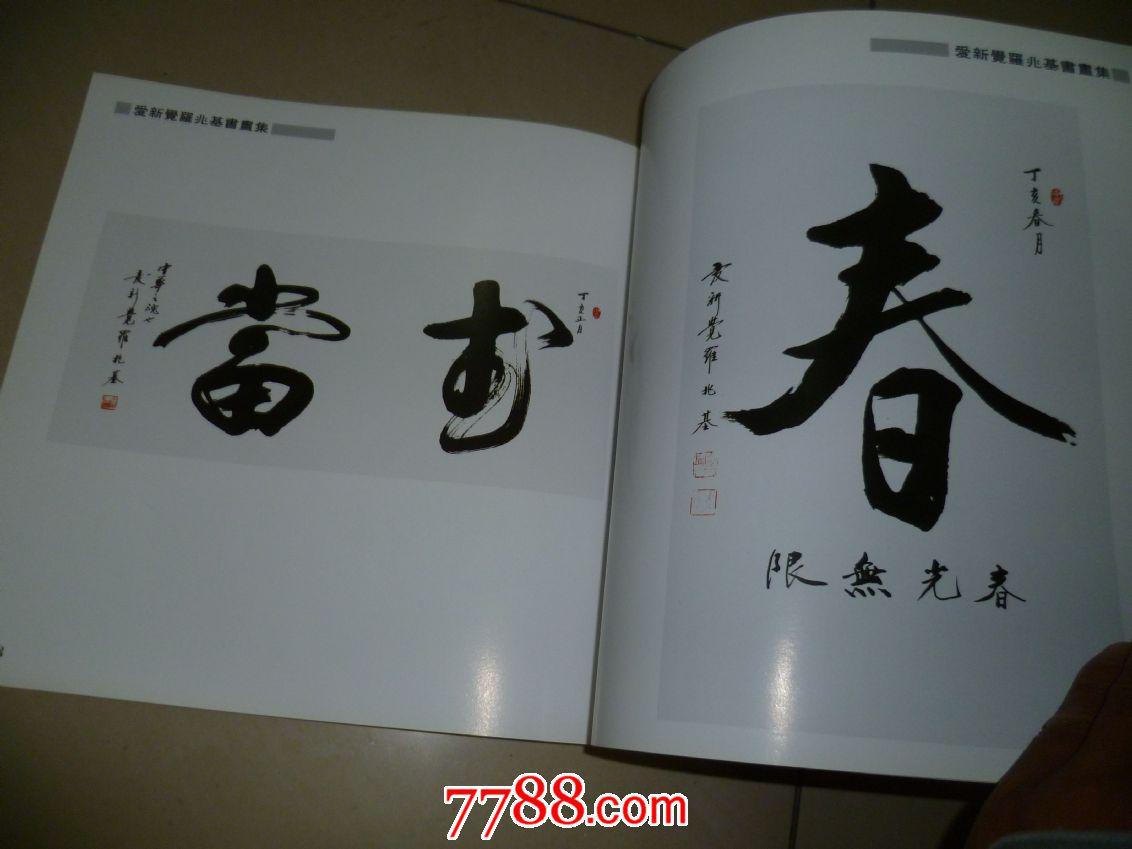 愛新覺羅兆基書畫集
丁亥正月
武當
中華之魂也
愛新覺羅兆基
愛新覺羅兆基書畫集
丁亥春月
春
春光無限
愛新覺羅兆基
7788.com